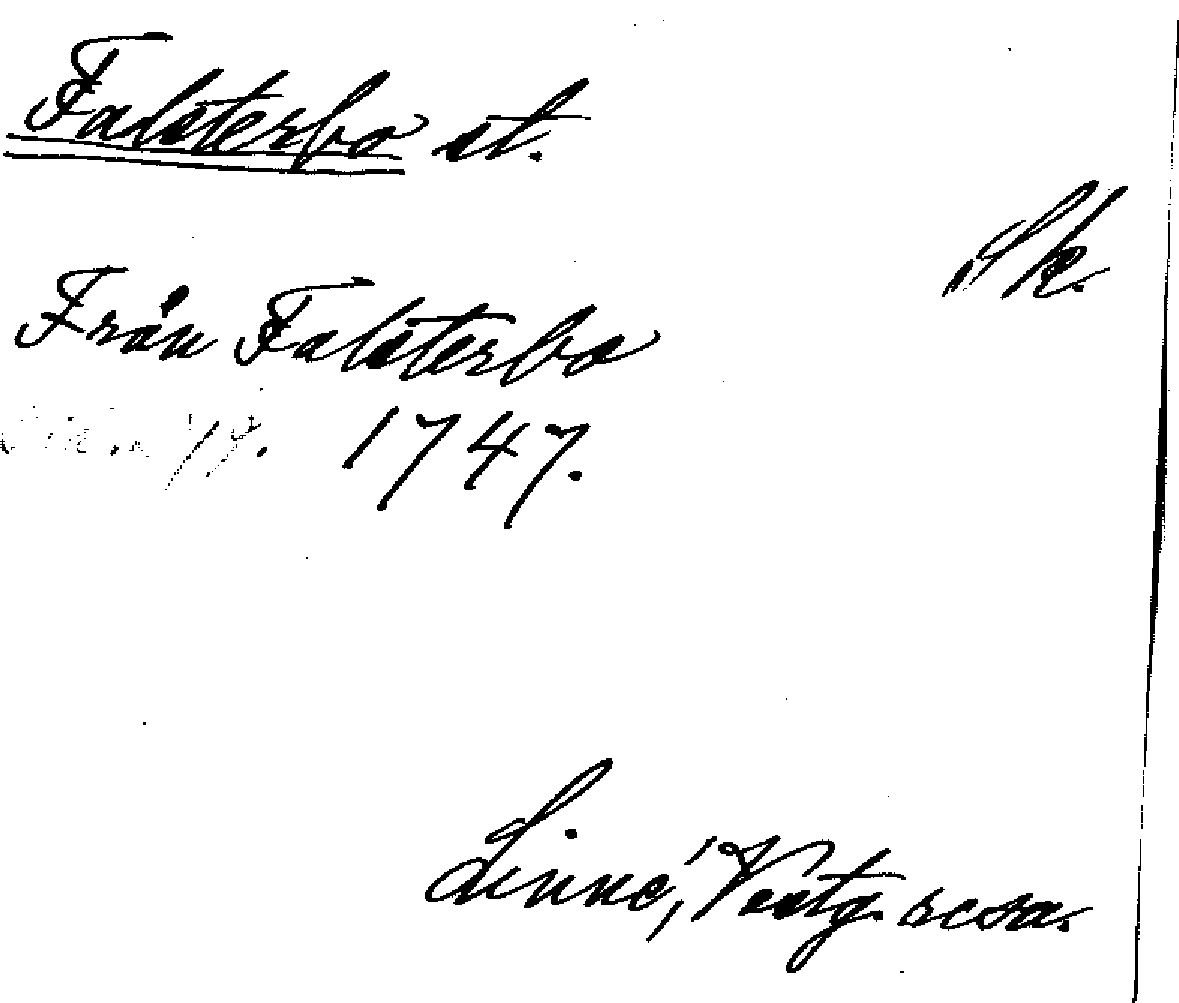 Falsterbo st.
Sk.
Från Falsterbo
1747.
Linné, Vestg. resa.